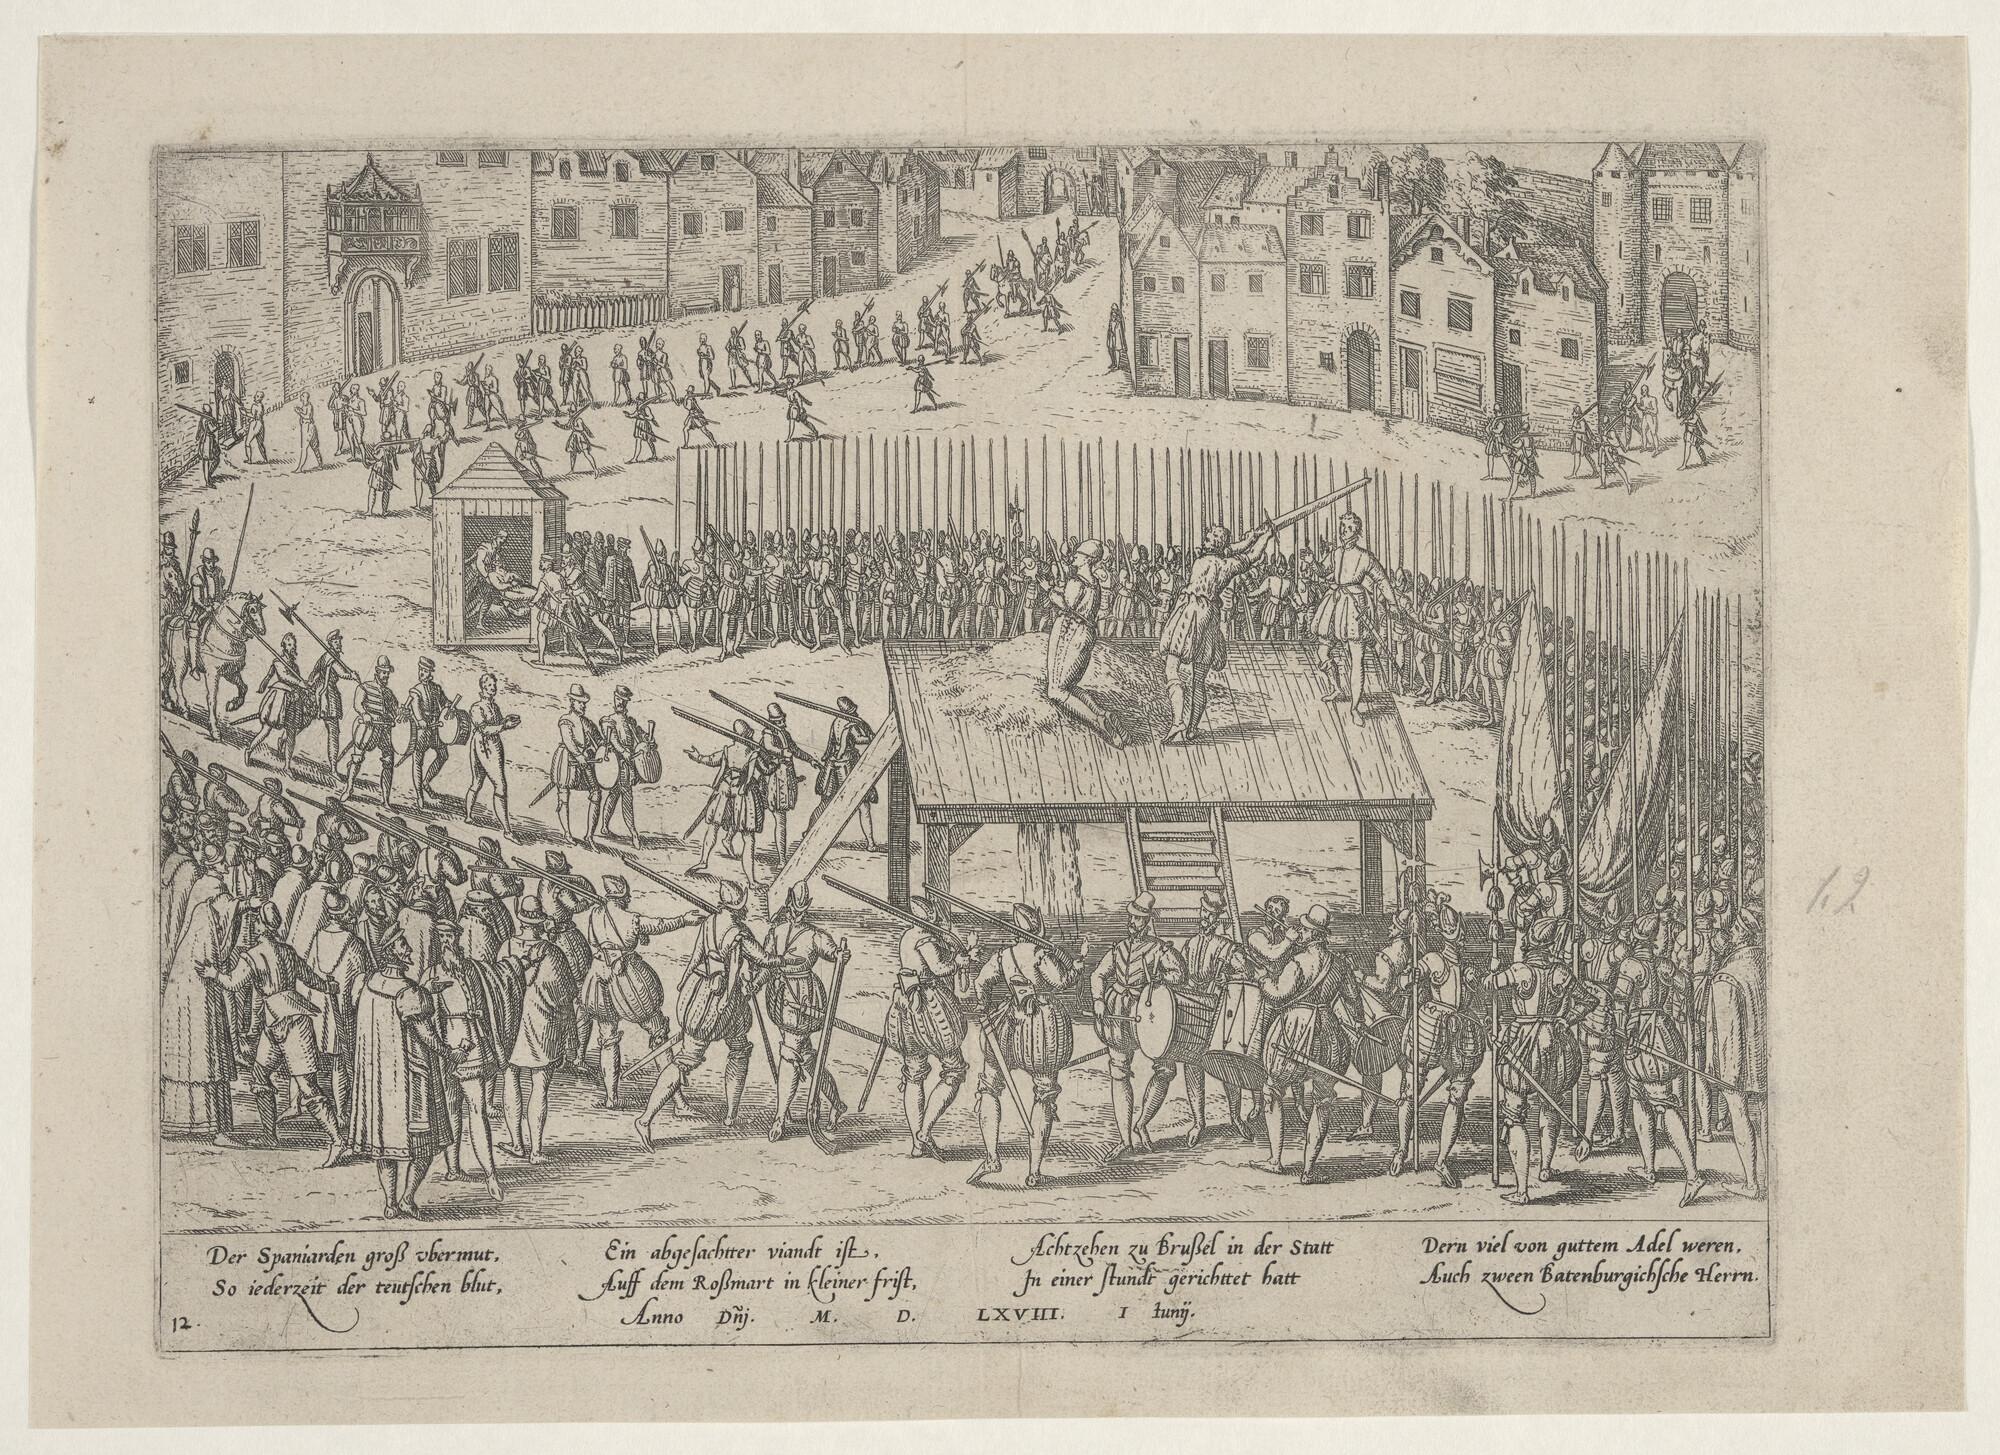 Der Spaniarden groß vbermut,
So iederzeit der teutschen blut,
Ein abgesachtter viandt ist,
Auff dem Roßmart in kleiner frist,
Achtzehen zu Brußel in der Statt
In einer stundt gerichttet hatt
Dern viel von guttem Adel weren,
Auch zween Batenburgichsche Herrn.
Anno Dñj. M. D. LXVIII. I Iunij.
12.
12